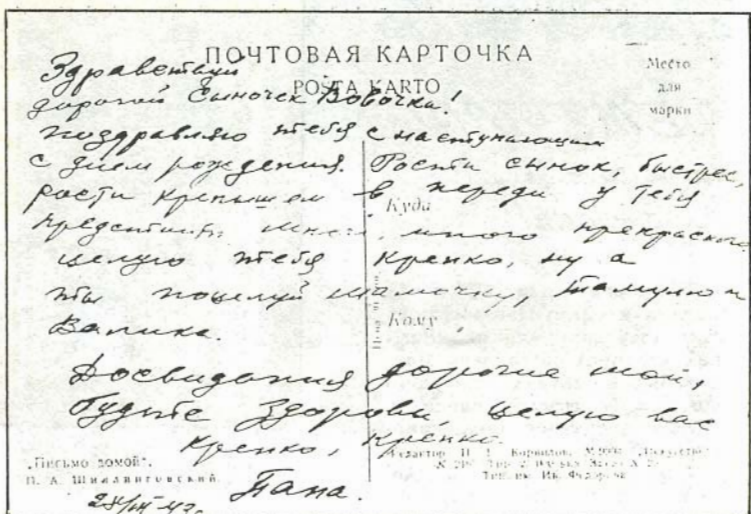 ПОЧТОВАЯ КАРТОЧКА
POŜTA KARTO
Место
для
марки
Здравствуй
дорогой Сыночек Вовочка!
поздравляю тебя с наступающим
с днем рождения. Расти сынок, быстрее,
расти крепышем в переди у тебя
Куда
много, много прекрасного
целую тебя крепко, ну а
ты поцелуй мамочку, Тамулю и
Валика.
Кому
Досвидания дорогие мои,
будьте здоровы, целую вас
крепко, крепко.
Папа.
„Письмо домой“.
П. А. Шиллинговский
Тип. им. Ив. Федорова